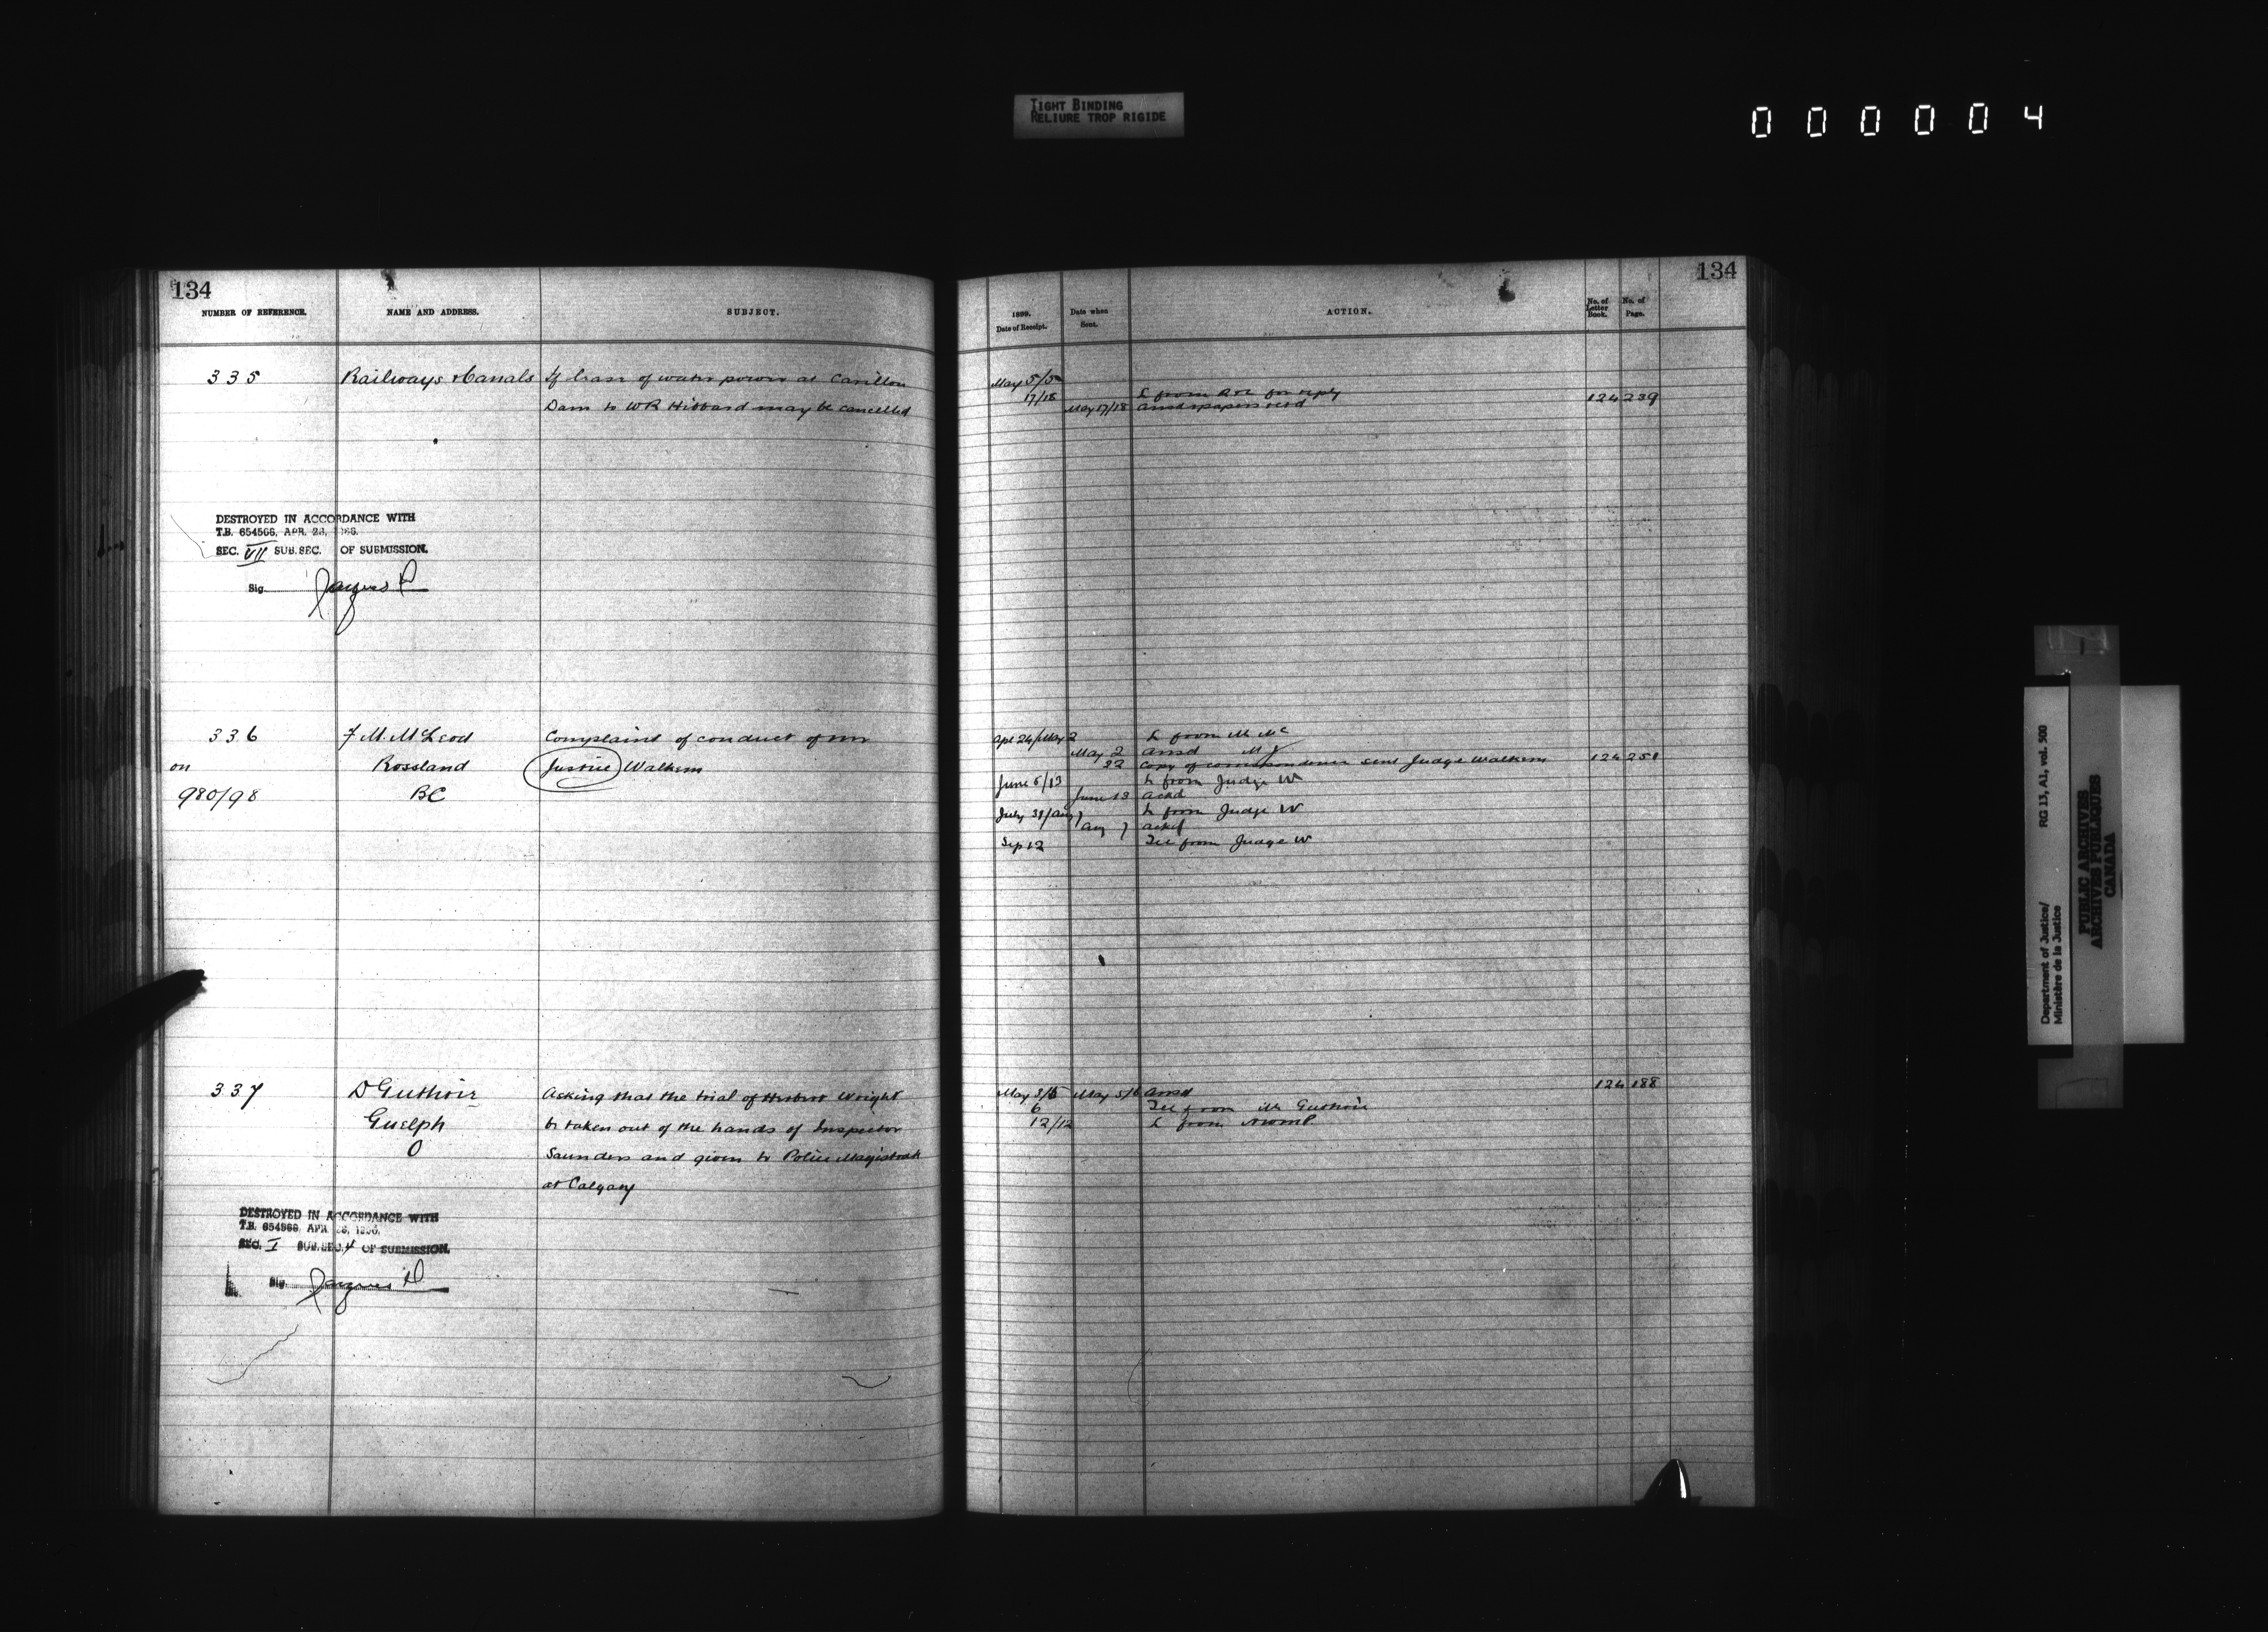 TIGHT BINDING
RELIURE TROP RIGIDE
000004
134
NUMBER OF REFERENCE. NAME AND ADDRESS. SUBJECT.
335 Railways & Canals If lease of water power at Carillon
Dam to WR Hibbard may be cancelled
DESTROYED IN ACCORDANCE WITH
T.B. 654566, APR. 28, 1966.
SEC. VII SUB.SEC. OF SUBMISSION.
Sig.
336 F M. McLeod Complaint of conduct of Mr
on Rossland Justice Walkem
980/98 BC
337 D Guthrie Asking that the trial of Herbert Wright
Guelph be taken out of the hands of Inspector
O Saunders and given to Police Magistrate
at Calgary
DESTROYED IN ACCORDANCE WITH
T.B. 654566, APR. 28, 1966.
SEC. I SUB.SEC. 4 OF SUBMISSION.
Sig.
134
1899. Date of Receipt. Date when Sent. ACTION. No. of Letter Book. No. of Page.
May 5/5
17/18 L from for reply
May 17/18 124 239
Apl 24/May 2 L from Mr Mc
May 2 ansd M J
22 Copy of correspondence sent Judge Walkem 124 251
June 6/13 L from Judge W
June 13 ackd
July 31/Aug 7 L from Judge W
Aug 7 ackd
Sep 12 Tel from Judge W
May 3/5 May 5/6 ansd 124 188
6 Tel from Mr Guthrie
12/12 L from
Department of Justice/
Ministère de la Justice
RG 13, A1, vol. 500
PUBLIC ARCHIVES
ARCHIVES PUBLIQUES
CANADA